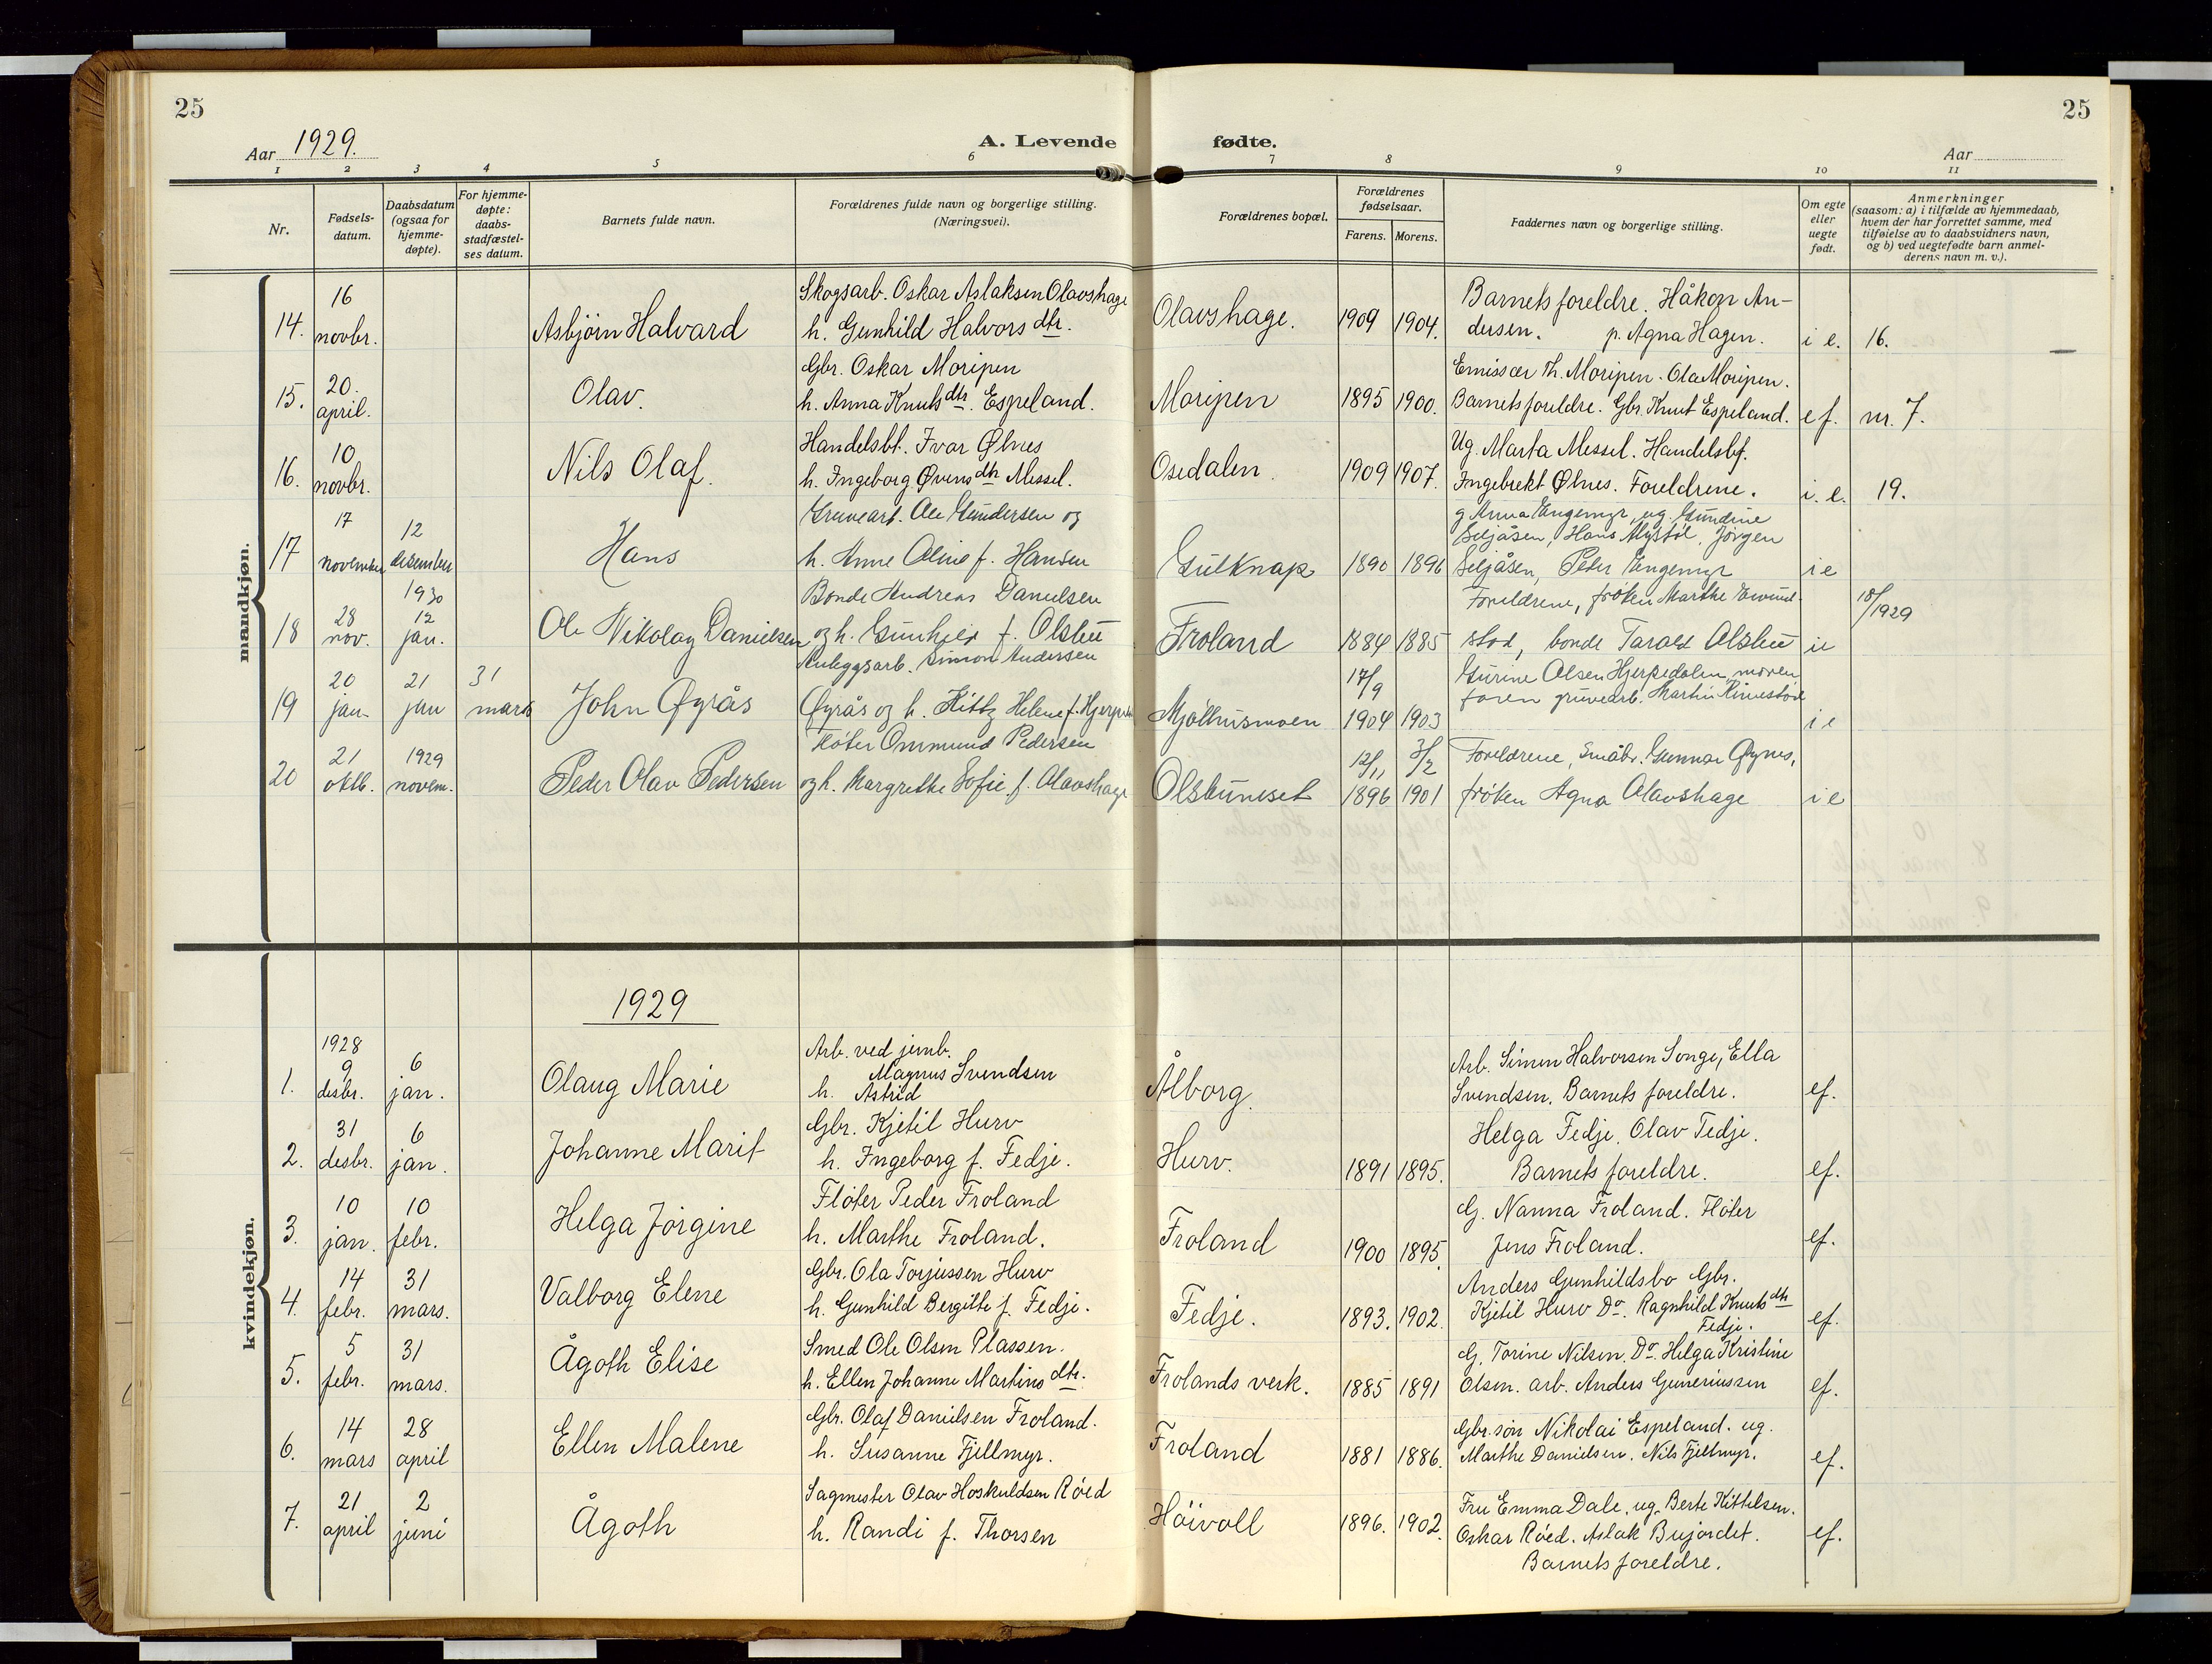 25
25
Aar 1929.
A. Levende fødte.
Aar
1 2 3 4 5 6 7 8 9 10 11
Nr.
Fødsels-
datum.
Daabsdatum
(ogsaa for
hjemme-
døpte).
For hjemme-
døpte:
daabs-
stadfæstel-
ses datum.
Barnets fulde navn.
Forældrenes fulde navn og borgerlige stilling.
(Næringsvei).
Forældrenes bopæl.
Forældrenes
fødselsaar.
Farens. Morens.
Faddernes navn og borgerlige stilling.
Om egte
eller
uegte
født.
Anmerkninger
(saasom: a) i tilfælde av hjemmedaab,
hvem der har forrettet samme, med
tilføielse av to daabsvidners navn,
og b) ved uegtefødte barn anmel-
derens navn m. v.).
mandkjøn.
14.
16
novbr.
Asbjørn Halvard
Skogsarb. Oskar Aslaksen Olavshage
h. Gunhild Halvors dtr.
Olavshage.
1909 1904.
Barnets foreldre. Håkon An-
dersen. p. Agna Hagen.
i e.
16.
15.
20.
april.
Olav.
Gbr. Oskar Moripen
h. Anna Knuts dtr. Espeland.
Moripen
1895 1900.
Emissær Th. Moripen. Ola Moripen.
Barnets foreldre. Gbr. Knut Espeland.
ef.
nr. 7.
16.
10
novbr.
Nils Olaf.
Handelsbt. Ivar Ølnes
h. Ingeborg Øvens dtr Messel.
Osedalen
1909 1907.
Ug. Marta Messel. Handelsbf.
Ingebrekt Ølnes. Foreldrene.
i. e.
19.
17
17
november
12
desember
Hans
Gruvearb. Ole Gundersen og
h. Anne Oline f. Hansen
Gulknap
1890 1896
g Anna Engemyr, ug. Gundine
Seljåsen, Hans Mystøl, Jörgen
Seljåsen, Peder Engemyr
i e
18
28
nov.
1930
12
jan.
Ole Nikolay Danielsen
Bonde Andreas Danielsen
og h. Gunhild f. Olsbu
Froland
1884 1885
Foreldrene, frøken Marthe Eivind-
stod, bonde Tarald Olsbu
ie
18/
1929
19
20
jan.
21
jan
31
mars
John Øyrås
Anleggsarb. Simon Andersen
Øyrås og h. Kitty Helene f. Hjerpe
Mjölhusmoen
17/9
1904 1903
Gurine Olsen Hjerpedalen, moren,
faren gruvearb. Martin Rinestod
i e
20
21
oktb.
1929
novem.
Peder Olav Pedersen
Fløter Ommund Pedersen
og h. Margrethe Sofie f. Olavshage
Olsbuneset
12/11 3/2
1896 1901
Foreldrene, Småbr. Gunnar Øynes,
frøken Agna Olavshage
i e
kvindekjøn.
1929
1.
1928
9
desbr.
6
jan.
Olaug Marie
Arb. ved jernb.
Magnus Svendsen
h. Astrid
Ålborg.
Arb. Simon Halvorsen Songe, Ella
Svendsen. Barnets foreldre.
ef.
2.
31
desbr.
6
jan.
Johanne Marit
Gbr. Kjetil Hurv
h. Ingeborg f. Fedje.
Hurv.
1891 1895.
Helga Fedje. Olav Fedje.
Barnets foreldre.
ef.
3.
10
jan.
10
febr.
Helga Jörgine
Fløter Peder Froland
h. Marthe Froland.
Froland
1900 1895.
G. Nanna Froland. Fløter
Jens Froland.
ef.
4.
14
febr.
31
mars.
Valborg Elene
Gbr. Ola Torjussen Hurv
h. Gunhild Bergitte f. Fedje.
Fedje.
1893. 1902.
Anders Gunhildsbo Gbr.
Kjetil Hurv Do. Ragnhild Knuts dtr
Fedje.
ef.
5.
5
febr.
31
mars.
Ågoth Elise
Smed Ole Olsen Plassen.
h. Ellen Johanne Martins dtr.
Frolands verk.
1885 1891
G. Torine Nilsen. Do. Helga Kristine
Olsen. arb. Anders Guneriussen
ef.
6.
14
mars
28
april
Ellen Malene
Gbr. Olaf Danielsen Froland.
h. Susanne Fjellmyr.
Froland
1881 1886.
Gbr. søn Nikolai Espeland. ug.
Marthe Danielsen. Nils Fjellmyr.
ef.
7.
21
april
2
juni
Ågoth
Sagmester Olav Hoskuldsen Röed
h. Randi f. Thorsen
Höivoll
1896. 1902.
Fru Emma Dale. ug. Berte Kittelsen.
Oskar Röed. Aslak Bujordet.
Barnets foreldre.
ef.